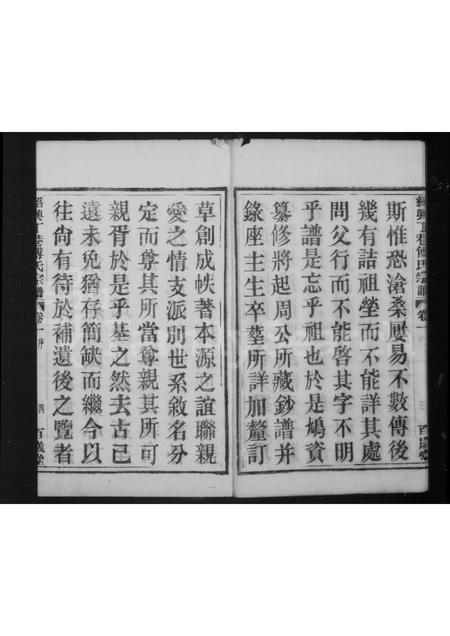 斯惟恐滄桑屢易不數傳後
幾有詰祖塋而不能詳其處
問父行而不能啓其字不明
乎譜是忘乎祖也於是鳩資
纂修將起周公所藏鈔譜并
錄座主生卒墓所詳加釐訂
草創成帙著本源之誼聯親
愛之情支派別世系敘名分
定而尊其所當尊親其所可
親胥於是乎基之然去古已
遠未免猶存簡缺而繼今以
往尚有待於補遺後之覽者
紹興丁巷傅氏宗譜
卷一
序
四